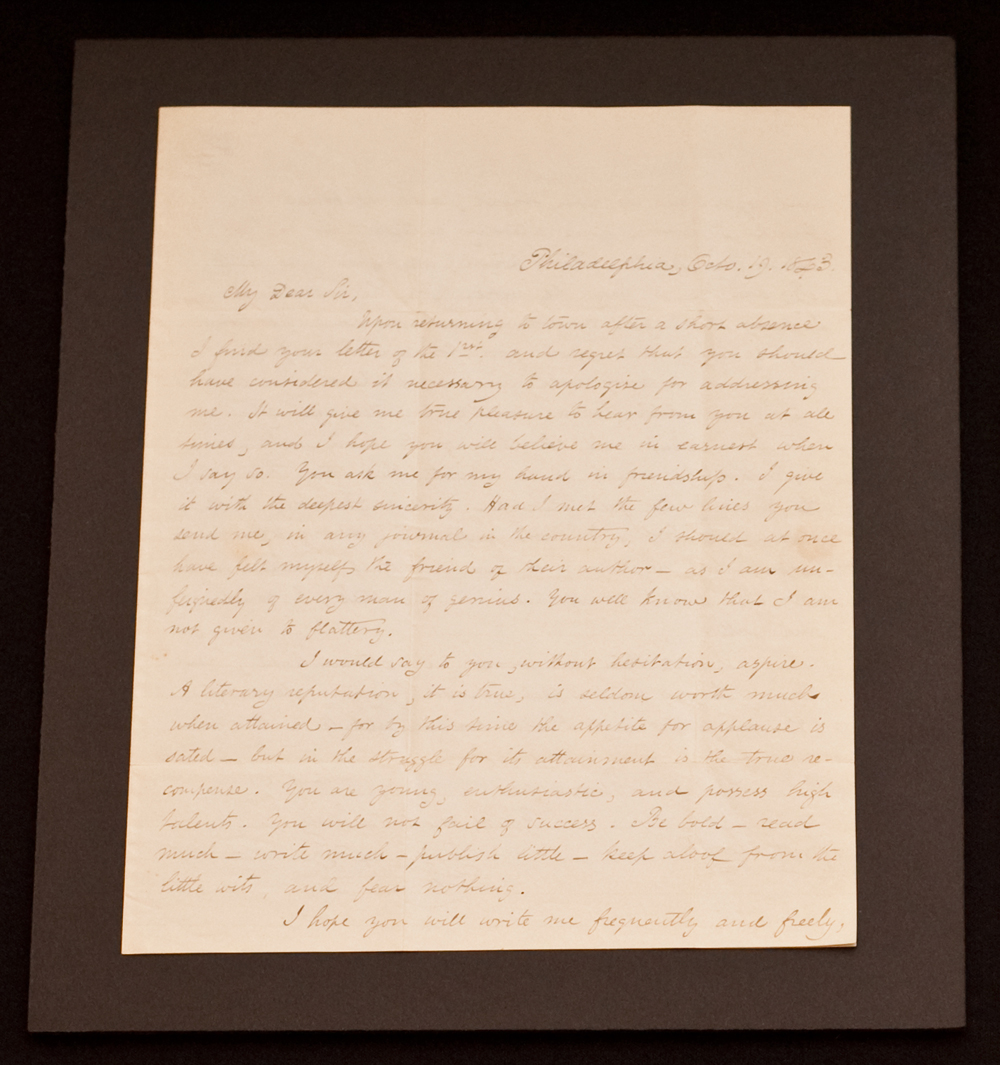 Philadelphia, Octo. 19. 1843.
My Dear Sir,
Upon returning to town after a short absence
I find your letter of the 1rst. and regret that you should
have considered it necessary to apologise for addressing
me. It will give me true pleasure to hear from you at all
times, and I hope you will believe me in earnest when
I say so. You ask me for my hand in friendship. I give
it with the deepest sincerity. Had I met the few lines you
send me, in any journal in the country, I should at once
have felt myself the friend of their author — as I am un-
feignedly of every man of genius. You well know that I am
not given to flattery.
I would say to you, without hesitation, aspire.
A literary reputation, it is true, is seldom worth much
when attained — for by this time the appetite for applause is
sated — but in the struggle for its attainment is the true re-
compense. You are young, enthusiastic, and possess high
talents. You will not fail of success. Be bold — read
much — write much — publish little — keep aloof from the
little wits, and fear nothing.
I hope you will write me frequently and freely,